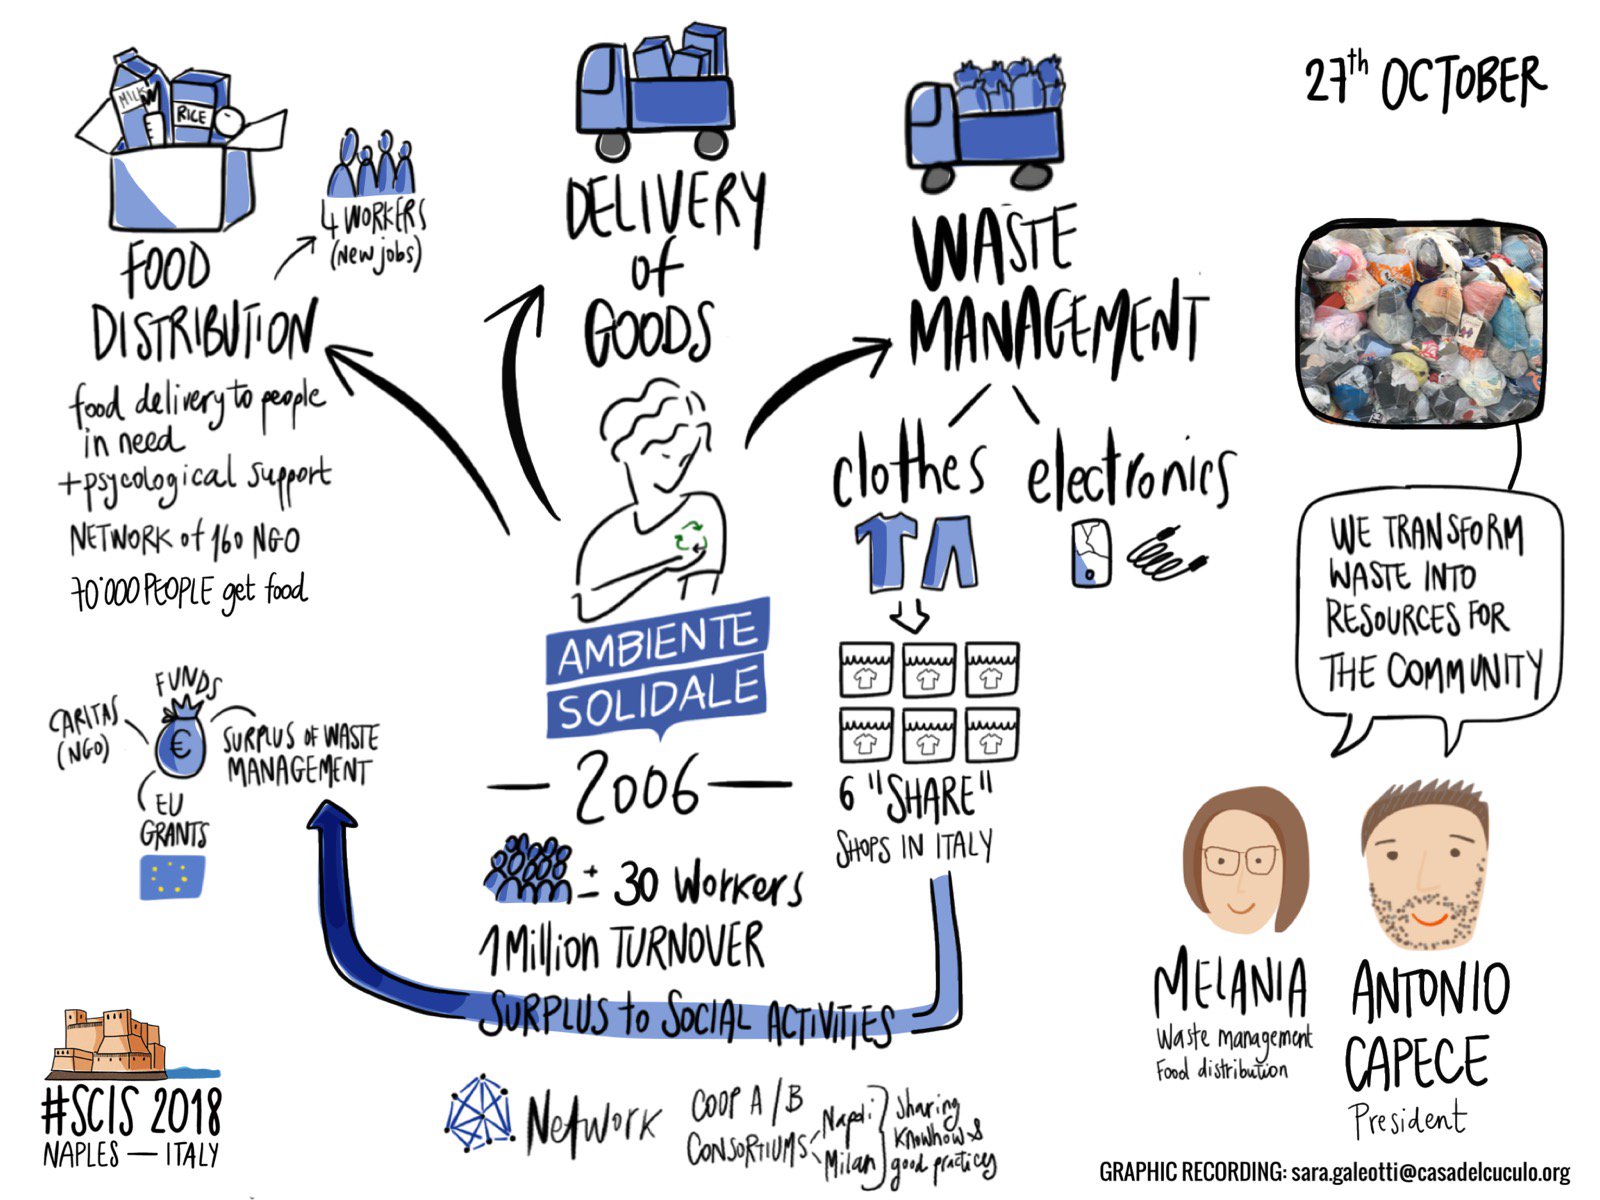 27th OCTOBER
MILK
RICE
4 WORKERS
(New jobs)
FOOD
DISTRIBUTION
food delivery to people
in need
+psycological support
NETWORK of 160 NGO
70'000 PEOPLE get food
DELIVERY
of
GOODS
WASTE
MANAGEMENT
clothes
electronics
6 "SHARE"
SHOPS IN ITALY
WE TRANSFORM
WASTE INTO
RESOURCES FOR
THE COMMUNITY
AMBIENTE
SOLIDALE
2006
± 30 Workers
1 Million TURNOVER
SURPLUS to SOCIAL ACTIVITIES
FUNDS
CARITAS
(NGO)
€
SURPLUS OF WASTE
MANAGEMENT
EU
GRANTS
MELANIA
Waste management
Food distribution
ANTONIO
CAPECE
President
#SCIS 2018
NAPLES — ITALY
NetWORK
COOP A/B
CONSORTIUMS
Napoli
Milan
Sharing
Knowhow &
good practices
GRAPHIC RECORDING: sara.galeotti@casadelcuculo.org